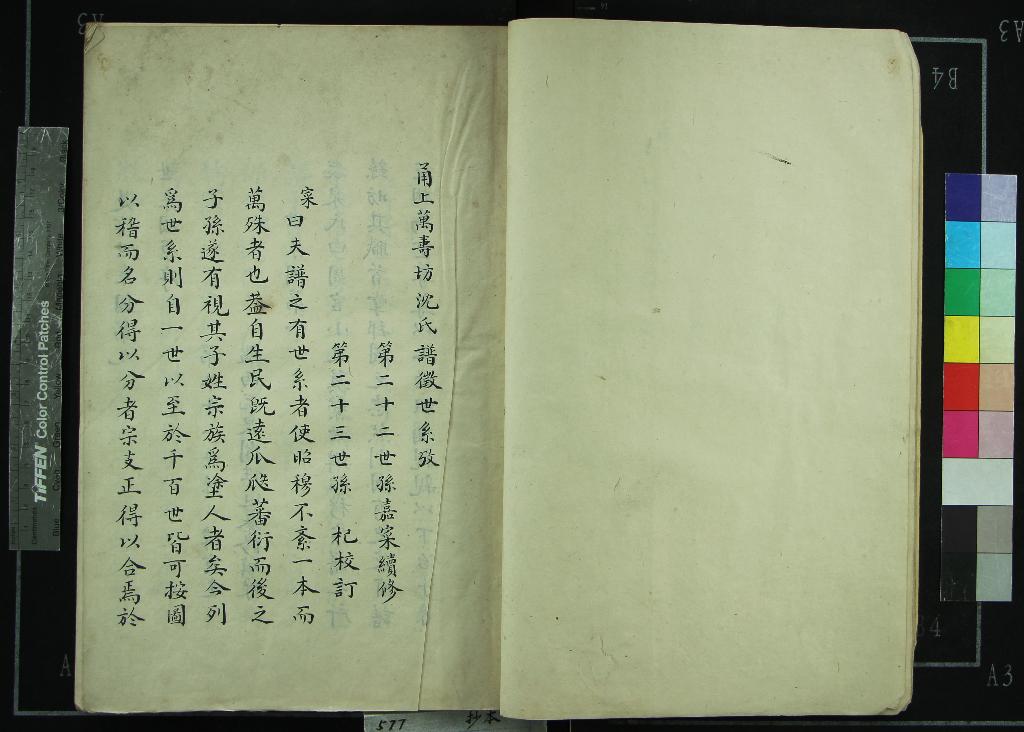 甬上萬壽坊沈氏譜徵世系攷
第二十二世孫嘉寀續修
第二十三世孫 杞校訂
寀曰夫譜之有世系者使昭穆不紊一本而
萬殊者也葢自生民旣遠瓜瓞蕃衍而後之
子孫遂有視其子姓宗族爲塗人者矣今列
爲世系則自一世以至於千百世皆可按圖
以稽而名分得以分者宗支正得以合焉於
TIFFEN Color Control Patches
577
抄本
A3
B4
A3
A